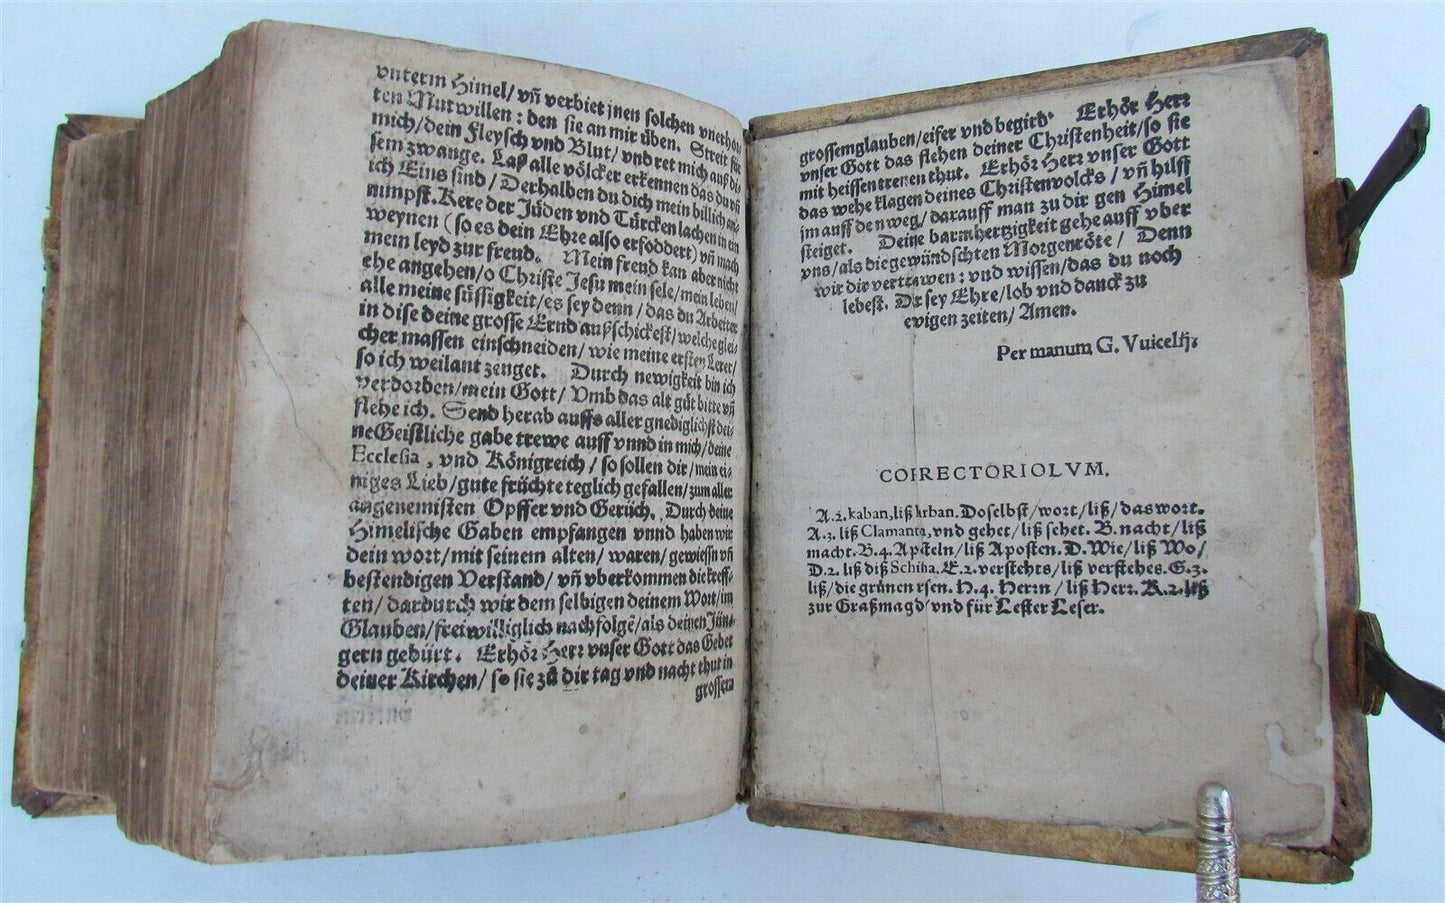 vnterm Himel/ vñ verbiet jnen solchen vnerhör
ten Mutwillen : den sie an mir üben. Streit für
mich/dein Fleysch vnd Blut/ vnd ret mich auß di-
sem zwange. Laß alle völcker erkennen das du vñ
ich Eins sind/ Derhalben du dich mein billich an-
nimpst. Kere der Jüden vnd Türcken lachen in ein
weynen (so es dein Ehre also erfoddert) vñ mach
mein leyd zur freud. Mein freud kan aber nicht
ehe angehen/o Christe Jesu mein sele/mein leben/
alle meine süssigkeit/es sey denn/ das du Arbeiter
in dise deine grosse Ernd außschickest/welche glei-
cher massen einschneiden/ wie meine ersten Lerer/
so ich weilant zeuget. Durch newigkeit bin ich
verdorben/mein Gott/ Vmb das alt güt bitte vñ
flehe ich. Send herab auffs aller gnediglichst dei-
ne Geistliche gabe trewe auff vnnd in mich/deine
Ecclesia, vnd Königreich/ so sollen dir/mein ei-
niges Lieb/gute früchte teglich gefallen/zum aller
angenemisten Opffer vnd Gerüch. Durch deine
Himelische Gaben empfangen vnnd haben wir
dein wort/mit seinem alten/ waren/gewiessn vñ
bestendigen Verstand/ vñ vberkommen die kreff-
ten/ dardurch wir dem selbigen deinem Wort/im
Glauben/freiwilliglich nachfolgẽ/als deinen Jün-
gern gebürt. Erhör Herr vnser Gott das Gebet
deiner Kirchen/ so sie zů dir tag vnd nacht thut in
grossem
grossemglauben/eifer vnd begird. Erhör Herr
vnser Gott das flehen deiner Christenheit/so sie
mit heissen trenen thut. Erhör Herr vnser Gott
das wehe klagen deines Christenvolcks/ vñ hilff
jm auff den weg/ darauff man zu dir gen Himel
steiget. Deine barmhertzigkeit gehe auff vber
vns/als die gewündschten Morgenröte/ Denn
wir dir vertrawen : vnd wissen/das du noch
lebest. Dir sey Ehre/lob vnd danck zu
ewigen zeiten/ Amen.
Per manum G. Vuicelij.
CORRECTORIOLVM.
A.2. kaban, liß krban. Doselbst/wort/liß/das wort.
A.3. liß Clamantꝫ, vnd gehet/liß sehet. B. nacht/liß
macht. B.4. Aposteln/liß Aposten. D. Wie/liß Wo/
D.2. liß diß Schiha. E.2. verstehts/liß verstehes. G.3.
liß/die grünen rsen. H.4. Herrn/liß Herr. K.2. liß
zur Graßmagd/vnd für Lester Leser.